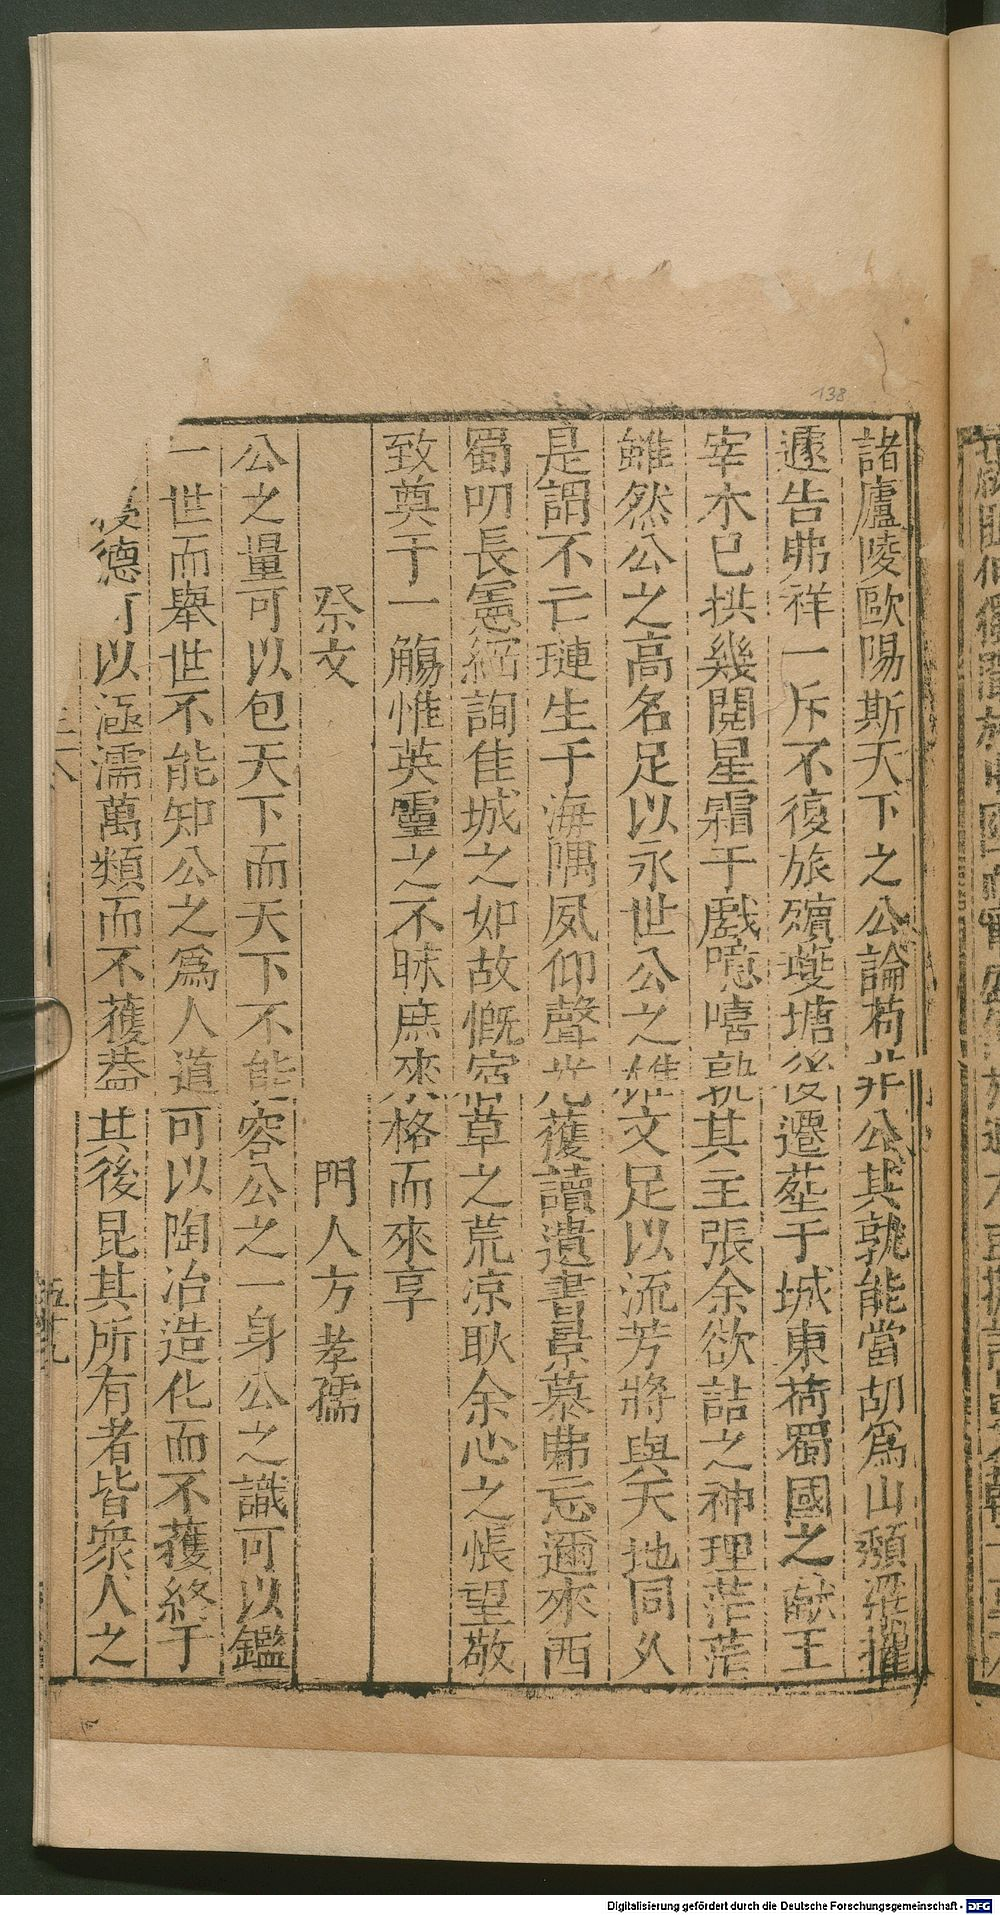 諸廬陵歐陽斯天下之公論苟非公其孰能當胡爲山頹梁摧
遽告弗祥一斥不復旅殯夔塘後遷塟于城東荷蜀國之獻王
宰木已拱幾閱星霜于戲噫嘻孰其主張余欲詰之神理茫茫
雖然公之高名足以永世公之雄文足以流芳將與天地同久
是謂不亡璉生于海隅夙仰聲光獲讀遺書景慕弗忘邇來西
蜀叨長憲綱詢佳城之如故慨宿草之荒凉耿余心之悵望敬
致奠于一觴惟英靈之不昧庶來格而來享
祭文
門人方孝孺
公之量可以包天下而天下不能容公之一身公之識可以鑑
一世而舉世不能知公之爲人道可以陶冶造化而不獲終于
德可以涵濡萬類而不獲蓋其後昆其所有者皆衆人之
五十九
138
Digitalisierung gefördert durch die Deutsche Forschungsgemeinschaft - DFG